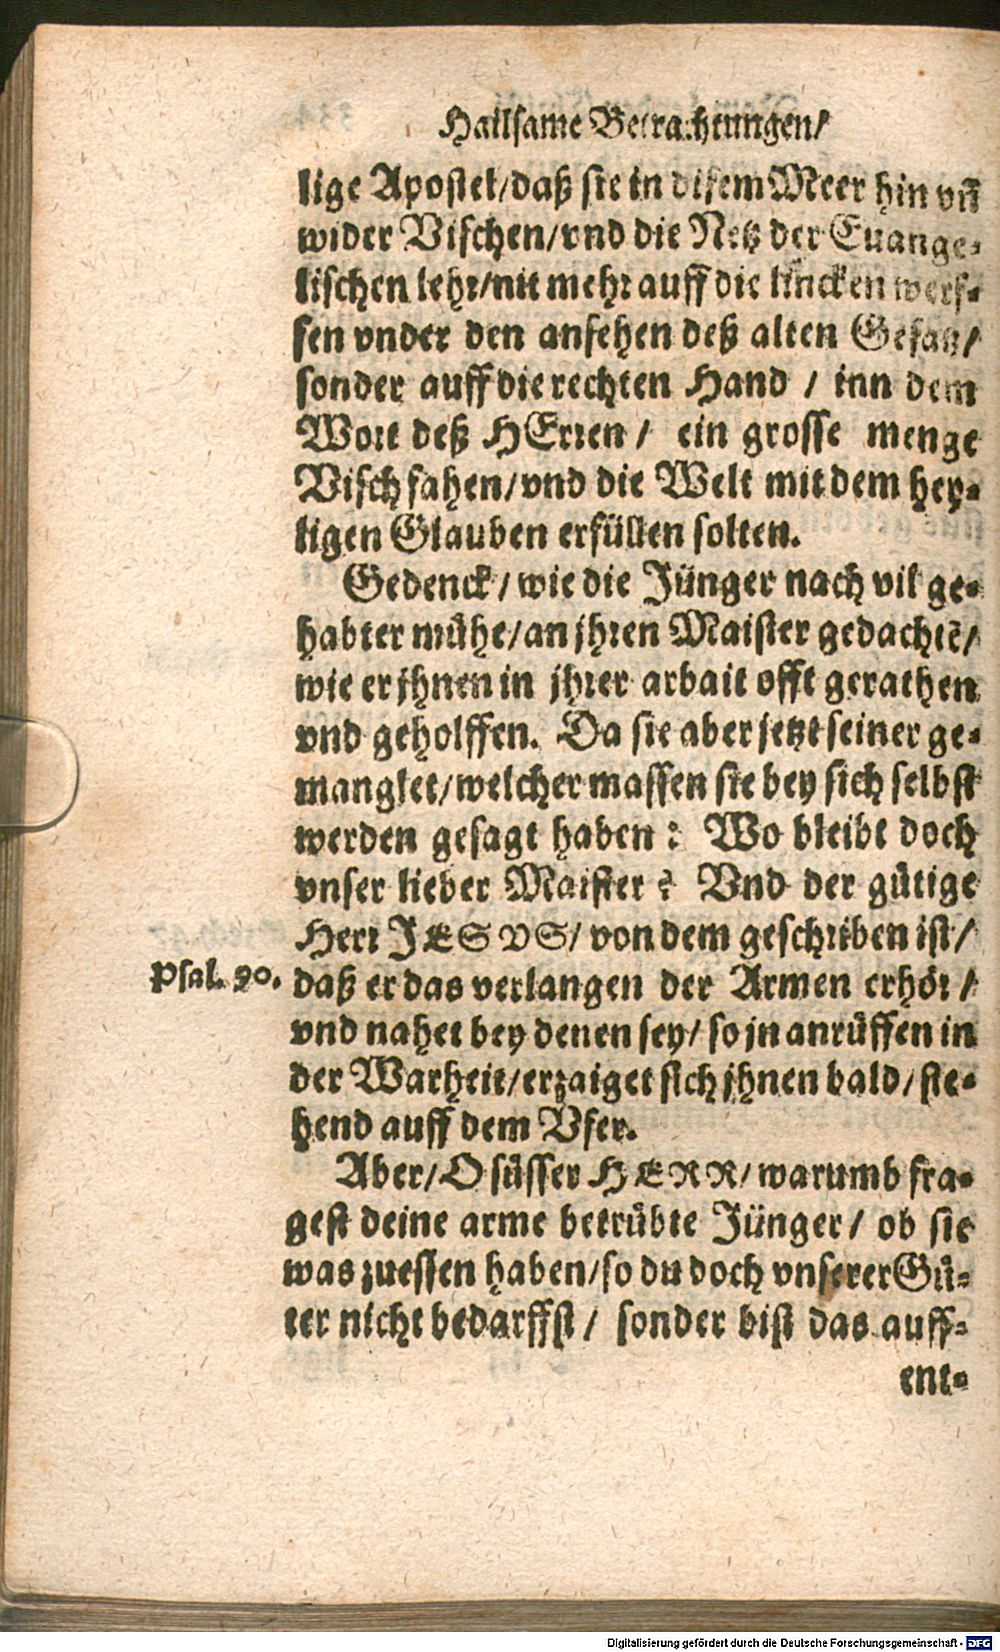 Hailsame Betrachtungen/
lige Apostel/daß sie in disem Meer hin vñ
wider Vischen/vnd die Netz der Euange-
lischen lehr/nit mehr auff die lincken werf-
fen vnder den ansehen deß alten Gesatz/
sonder auff die rechten Hand / inn dem
Wort deß HErren / ein grosse menge
Visch fahen/vnd die Welt mit dem hey-
ligen Glauben erfüllen solten.
Gedenck/wie die Jünger nach vil ge-
habter mühe/an jhren Maister gedachtẽ/
wie er jhnen in jhrer arbait offt gerathen
vnd geholffen. Da sie aber jetzt seiner ge-
manglet/welcher massen sie bey sich selbst
werden gesagt haben: Wo bleibt doch
vnser lieber Maister? Vnd der gütige
Herr JESVS/von dem geschriben ist/
Psal. 90. daß er das verlangen der Armen erhör/
vnd nahet bey denen sey/so jn anrüffen in
der Warheit/erzaiget sich jhnen bald/ste-
hend auff dem Vfer.
Aber/O süsser HERR/warumb fra-
gest deine arme betrübte Jünger/ ob sie
was zuessen haben/so du doch vnserer Gü-
ter nicht bedarffst/ sonder bist das auff-
ent-
Digitalisierung gefördert durch die Deutsche Forschungsgemeinschaft - DFG